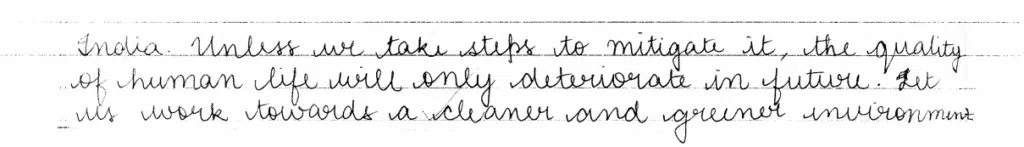 India. Unless we take steps to mitigate it, the quality
of human life will only deteriorate in future. Let
us work towards a cleaner and greener environment